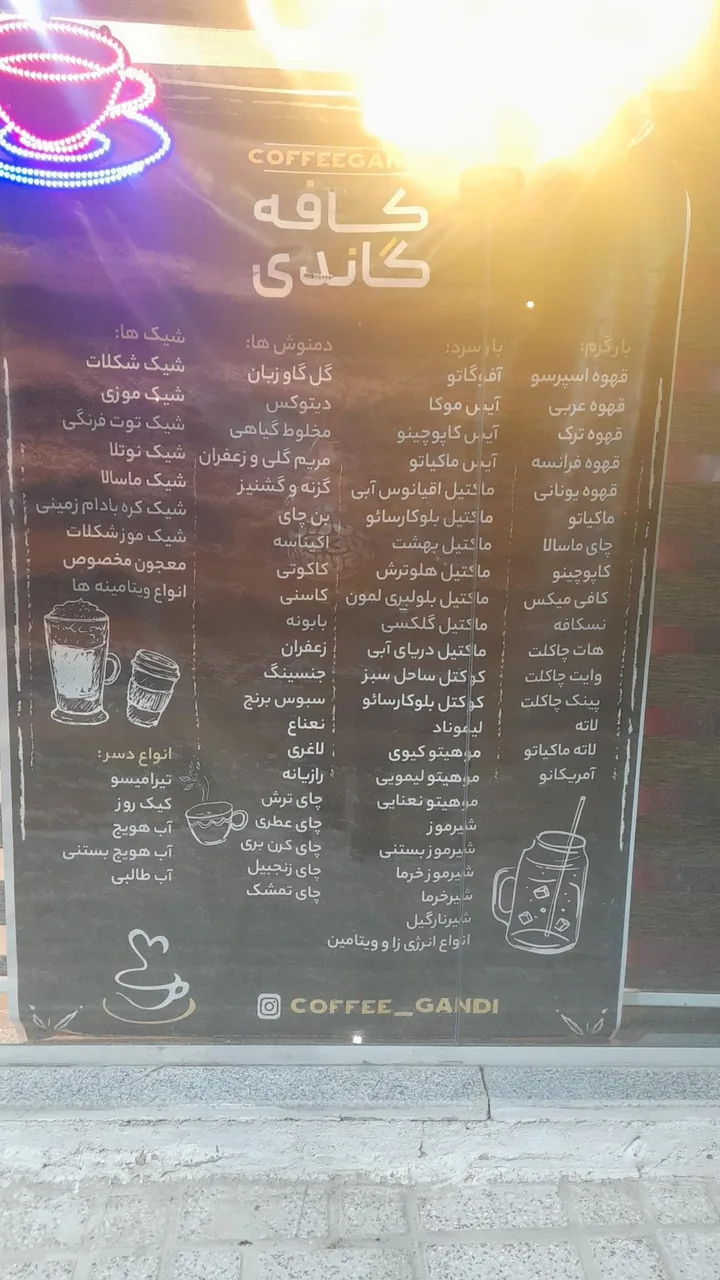 COFFEEGAN
کافه
گاندی
بار گرم:
قهوه اسپرسو
قهوه عربی
قهوه ترک
قهوه فرانسه
قهوه یونانی
ماکیاتو
چای ماسالا
کاپوچینو
کافی میکس
نسکافه
هات چاکلت
وایت چاکلت
پینک چاکلت
لاته
لاته ماکیاتو
آمریکانو
بار سرد:
آفوگاتو
آیس موکا
آیس کاپوچینو
آیس ماکیاتو
ماکتیل اقیانوس آبی
ماکتیل بلوکارسائو
ماکتیل بهشت
ماکتیل هلوترش
ماکتیل بلولیری لمون
ماکتیل گلکسی
ماکتیل دریای آبی
کوکتل ساحل سبز
کوکتل بلوکارسائو
لیموناد
موهیتو کیوی
موهیتو لیمویی
موهیتو نعنایی
شیرموز
شیرموز بستنی
شیرموز خرما
شیرخرما
شیرنارگیل
انواع انرژی زا و ویتامین
دمنوش ها:
گل گاو زبان
دیتوکس
مخلوط گیاهی
مریم گلی و زعفران
گزنه و گشنیز
بن چای
اکیناسه
کاکوتی
کاسنی
بابونه
زعفران
جنسینگ
سبوس برنج
نعناع
لاغری
رازیانه
چای ترش
چای عطری
چای کرن بری
چای زنجبیل
چای تمشک
شیک ها:
شیک شکلات
شیک موزی
شیک توت فرنگی
شیک نوتلا
شیک ماسالا
شیک کره بادام زمینی
شیک موز شکلات
معجون مخصوص
انواع ویتامینه ها
انواع دسر:
تیرامیسو
کیک روز
آب هویج
آب هویج بستنی
آب طالبی
COFFEE_GANDI